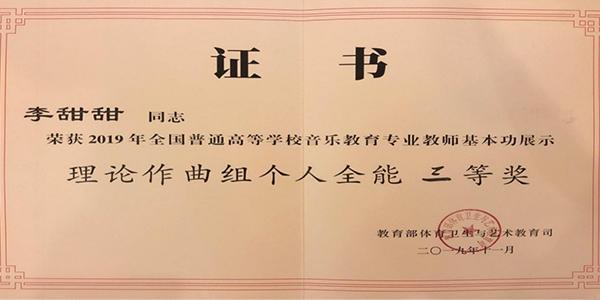 证 书
李甜甜 同志
荣获2019年全国普通高等学校音乐教育专业教师基本功展示
理论作曲组个人全能 三等奖
教育部体育卫生与艺术教育司
二〇一九年十一月